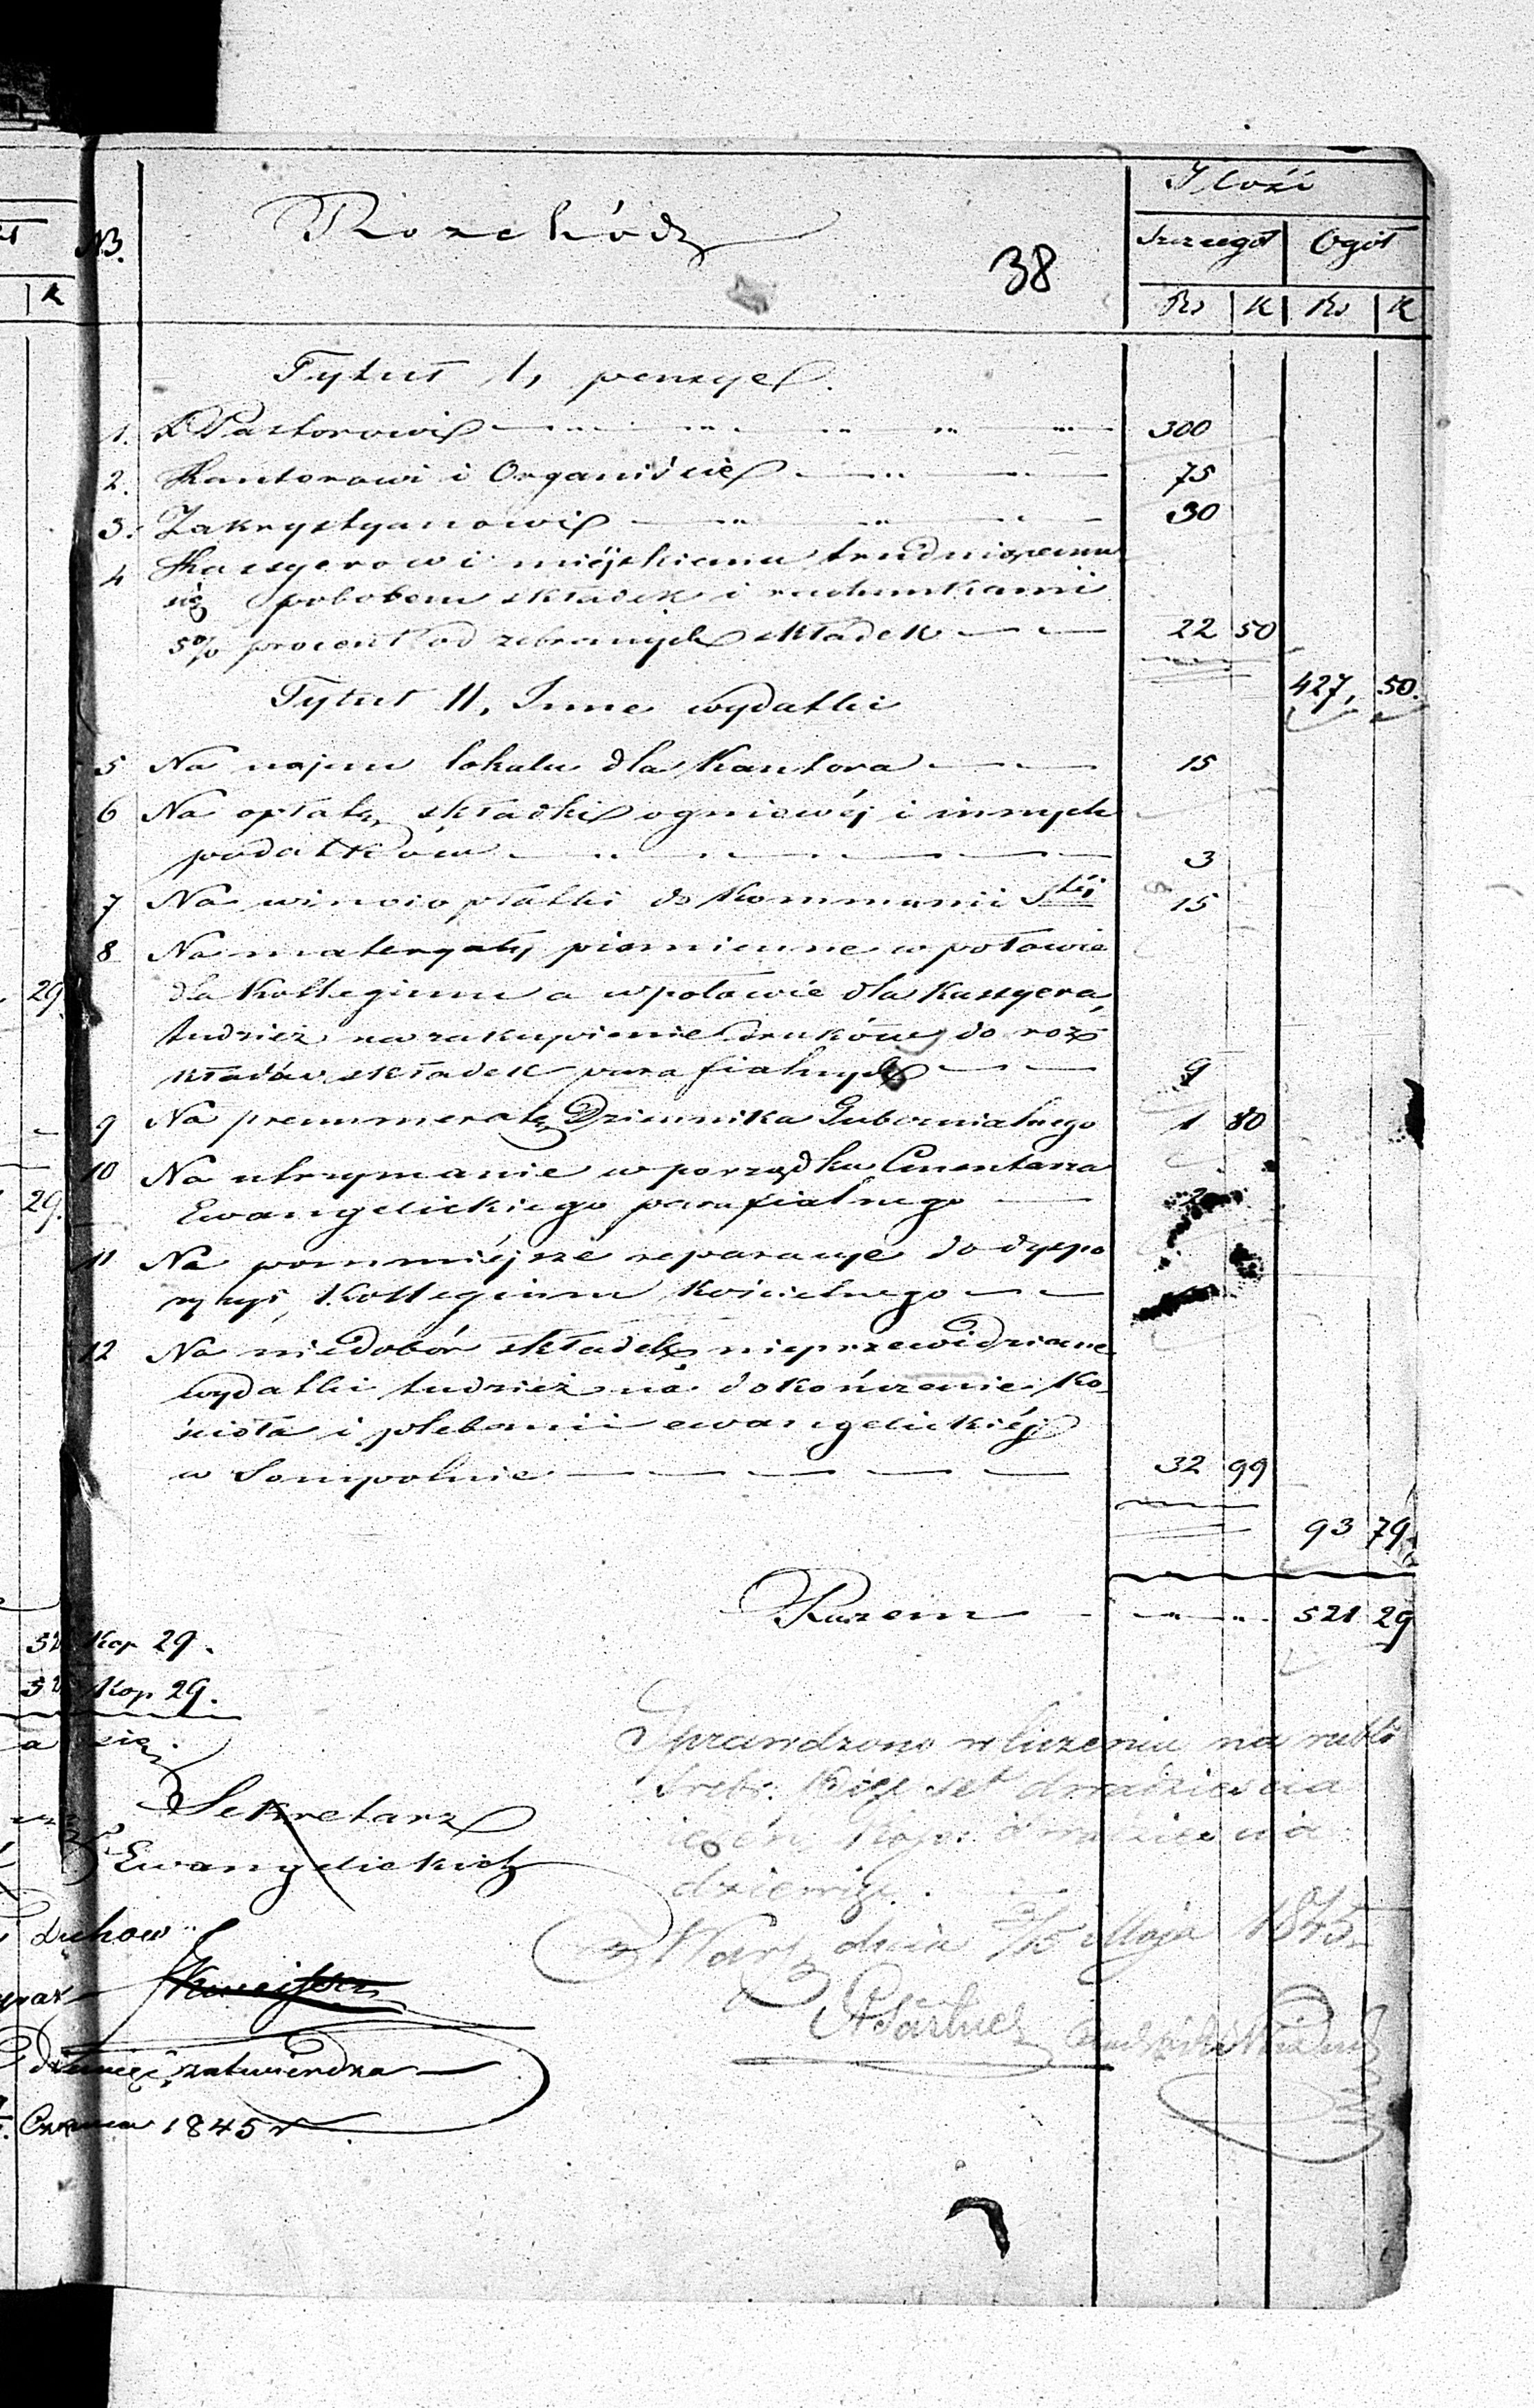 Ilość
NB. Rozchódz 38 Szczegół Ogół
K Rs K Rs K
Tytuł I, pensye
1. X Pastorowi 300
2. Kantorowi i Organiście 75
3. Zakrystyanowi 30
4 Kassyerowi miéjskiemu trudniącemu
się poborem składek i rachunkami
5% procent od zebranych składek 22 50
427, 50.
Tytuł II, Inne wydatki
5 Na najem lokalu dla Kantora 15
6 Na opłatę składki ogniowéj i innych
podatków 3
7 Na wino i opłatki do Kommunii Stéj 15
8 Na materyały piśmienne w połowie
dla Kollegium a w połowie dla Kassyera,
tudzież na zakupienie druków do roz
kładów składek parafialnych 9
9 Na prenumeratę Dziennika Gubernialnego 1 80
10 Na utrzymanie w porządku Cmentarza
Ewangelickiego parafialnego
11 Na pomniéjsze reparacye do dyspo
zycyi Kollegium Kościelnego
12 Na niedobór składek, nieprzewidziane
wydatki tudzież na dokończenie Ko
ścioła i plebanii ewangelickiéj
w Sompolnie 32 99
93 79.
Razem 521 29
29.
29.
Kop 29.
Kop 29.
Sprawdzono w liczeniu na rubli
srebr. pięć set dwadzieścia
jeden, Kop: dwadzieścia
dziewięć.
Warsz dnia 3/15 Maja 1845
Sekretarz
Ewangelickich
Duchow
zatwierdza
Czerwca 1845 r